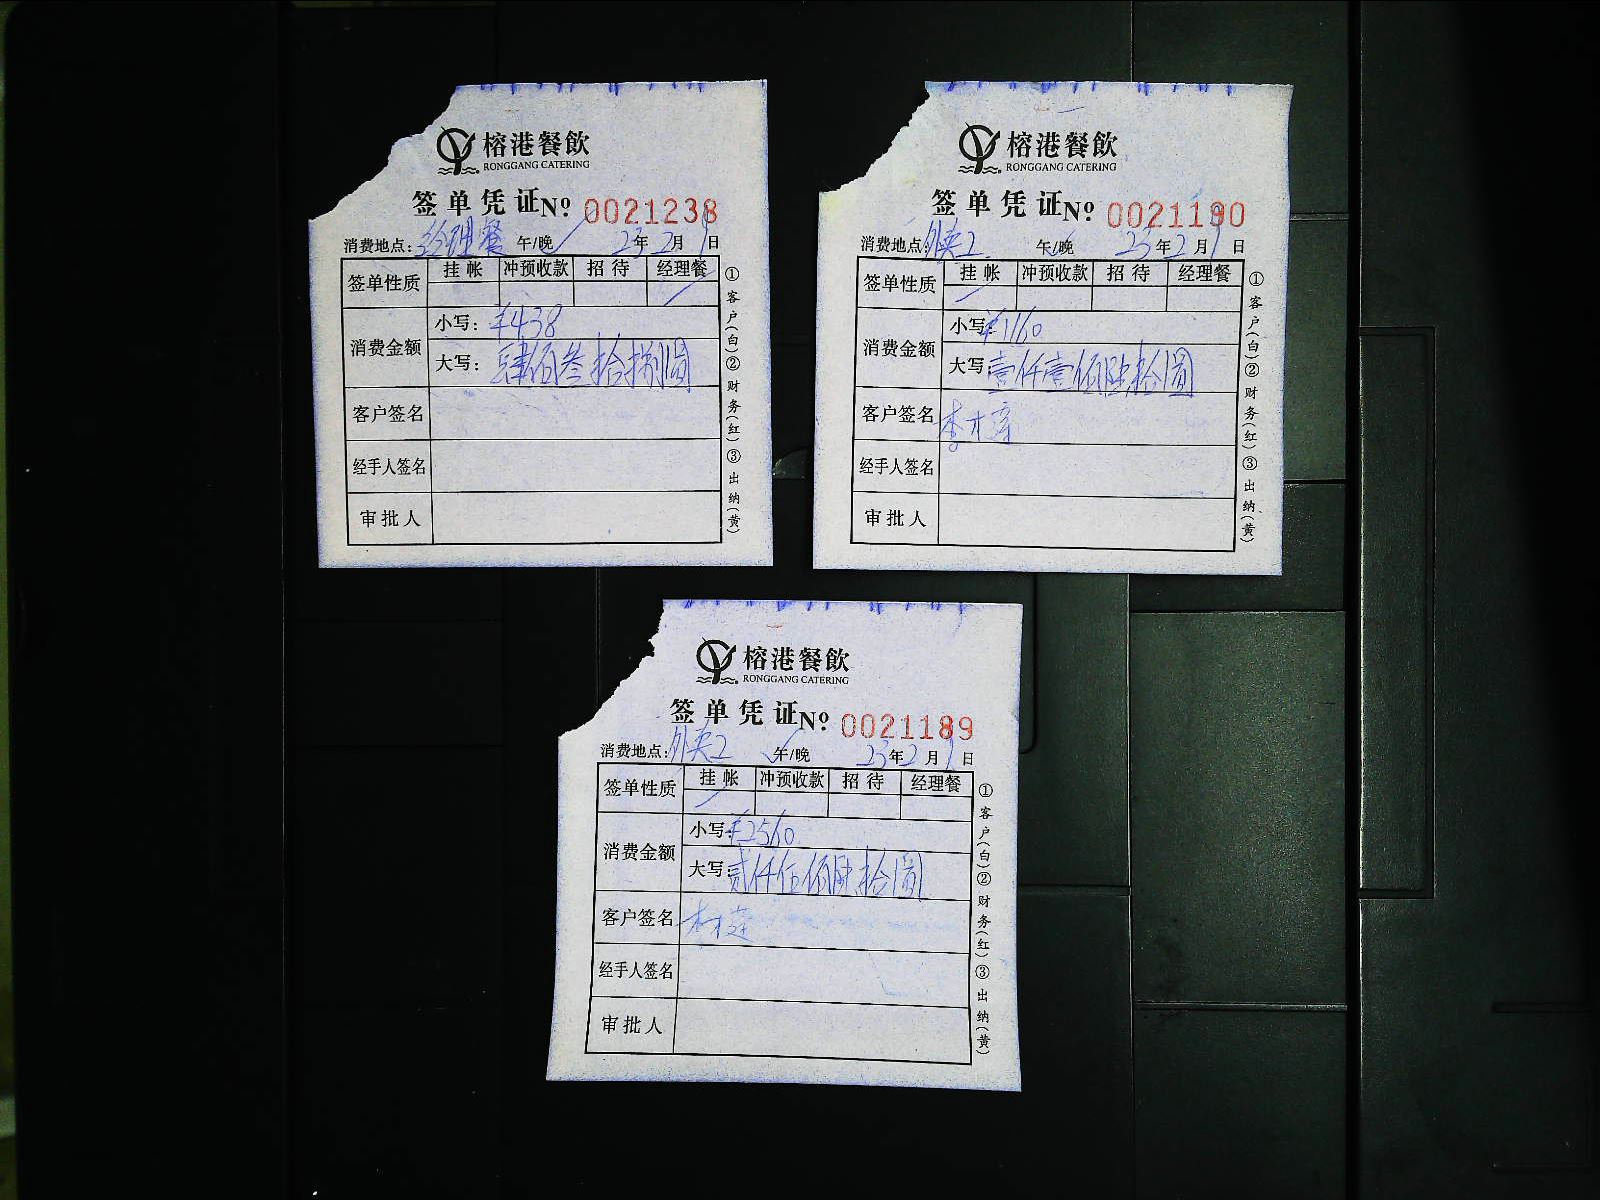 榕港餐飲
RONGGANG CATERING
签单凭证 Nº 0021238
消费地点: 经理餐 午/晚 23年2月1日
签单性质 挂帐 冲预收款 招待 经理餐
消费金额 小写: ¥438
大写: 肆佰叁拾捌圆
客户签名
经手人签名
审批人
①客户(白)②财务(红)③出纳(黄)
榕港餐飲
RONGGANG CATERING
签单凭证 Nº 0021190
消费地点: 外卖2 午/晚 23年2月1日
签单性质 挂帐 冲预收款 招待 经理餐
消费金额 小写: ¥1160
大写: 壹仟壹佰陆拾圆
客户签名
经手人签名
审批人
①客户(白)②财务(红)③出纳(黄)
榕港餐飲
RONGGANG CATERING
签单凭证 Nº 0021189
消费地点: 外卖2 午/晚 23年2月1日
签单性质 挂帐 冲预收款 招待 经理餐
消费金额 小写: ¥2560
大写: 贰仟伍佰陆拾圆
客户签名
经手人签名
审批人
①客户(白)②财务(红)③出纳(黄)